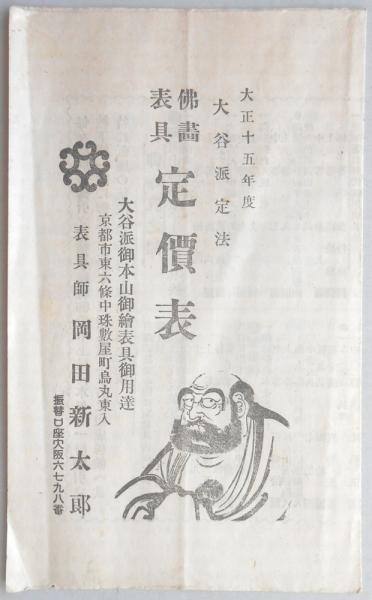 大正十五年度
大谷派定法
佛畵
表具
定價表
大谷派御本山御繪表具御用達
京都市東六條中珠數屋町烏丸東入
表具師 岡田新太郎
振替口座大阪六七九八番